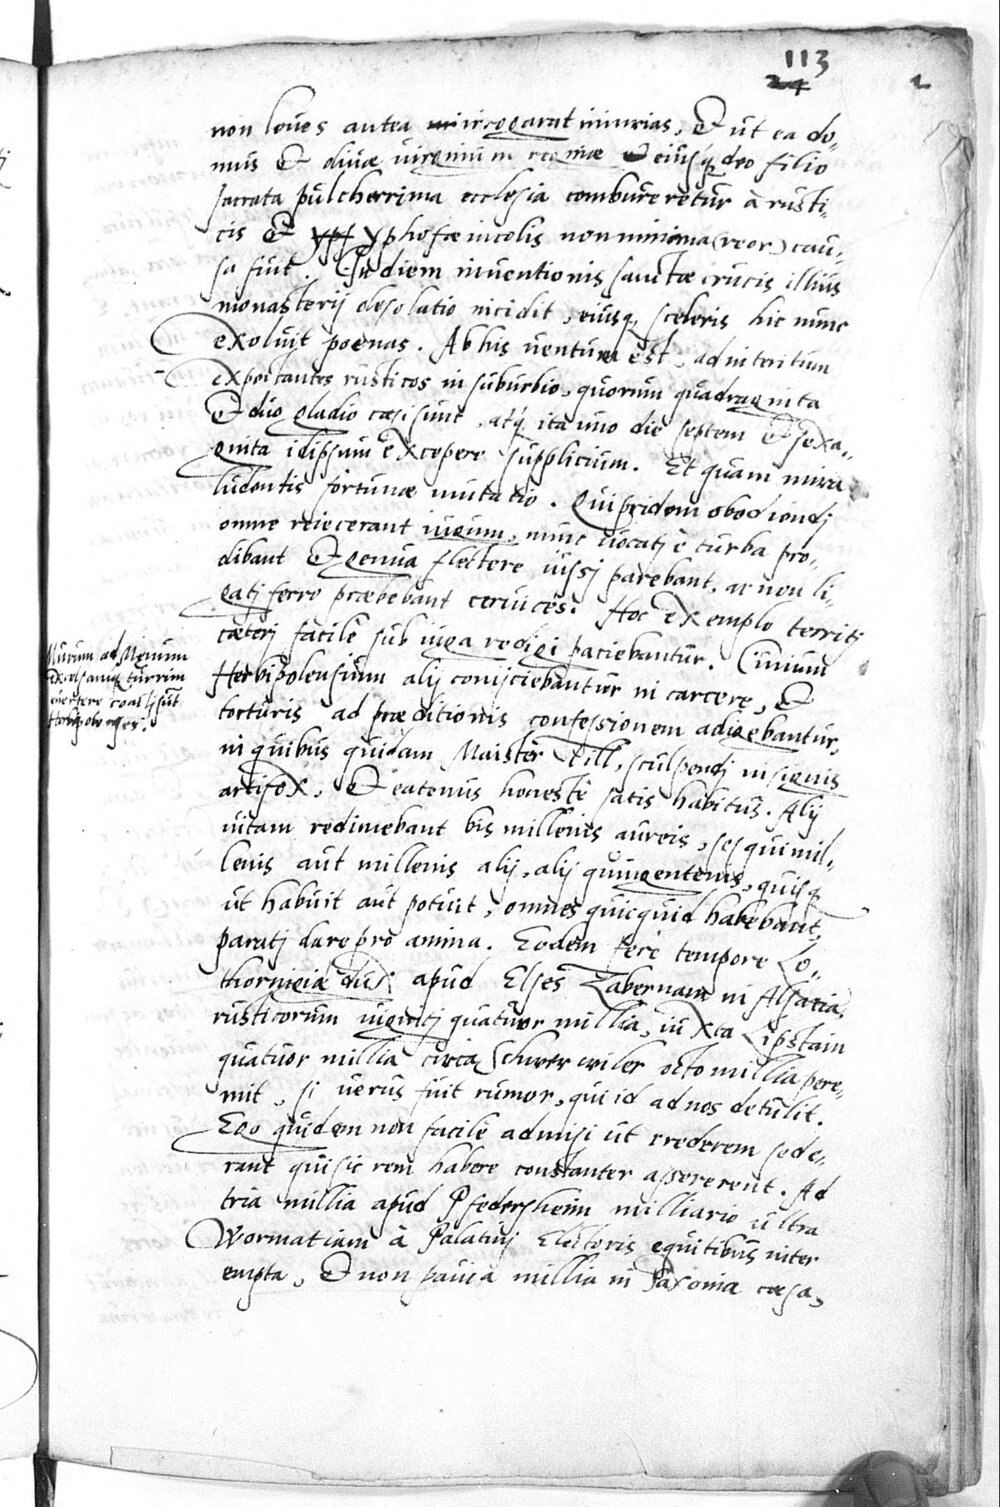 113
24
2
non leues antea irrogarat iniurias, Et ut ea do-
mus Et diuæ uirginum reginæ eiusq deo filio
sacrata pulcherrima ecclesia combureretur à rusti-
cis Et yphofæ incolis non minima (reor) cau-
sa fuit. In diem inuentionis sanctæ crucis illius
monasterij desolatio incidit, eiusq sceleris hic nunc
exoluit poenas. Ab his uentum est, ad interitum
expectantes rusticos in suburbio, quorum quadraginta
Et duo gladio cæsi sunt, atq ita uno die septem Et sexa-
ginta id ipsum excepere supplicium. Et quam mira
ludentis fortunæ mutatio. Qui pridem obediendj
omne reiecerant iugum, nunc uocatj è turba pro-
dibant Et genua flectere iussj parebant, ac non li-
gatj ferro præbebant ceruices. Hoc exemplo territj
cæterj facile sub iuga redigi paciebantur. Ciuium
Herbipolensium alij coniiciebantur in carcere, Et
torturis ad præditionis confessionem adigebantur,
in quibus quidam Maister Till, sculpendj insignis
artifex, Et eatenus honeste satis habitus. Alij
uitam redimebant bis millenis aureis, sesquimil-
lenis aut millenis alij, alij quingentenis, quisq
ut habuit aut potuit, omnes quicquid habebant,
paratj dare pro anima. Eodem fere tempore Lo-
thoringiæ dux apud Elses Zabernam in Alsatia,
rusticorum uigintj quatuor millia, iuxta Lipstain
quatuor millia circa Scherwiler octo millia pere-
mit, si uerus fuit rumor, qui id ad nos detulit.
Ego quidem non facile admisi ut crederem sed e-
rant qui sic rem habere constanter assererent. Ad
tria millia apud Pfedersheim milliario ultra
Wormatiam à Palatinj Electoris equitibus inter
empta, Et non pauca millia in Saxonia cæsa,
Murum ad Mœnum
excelsamq turrim
euertere coactj sut
Herbipolenses.